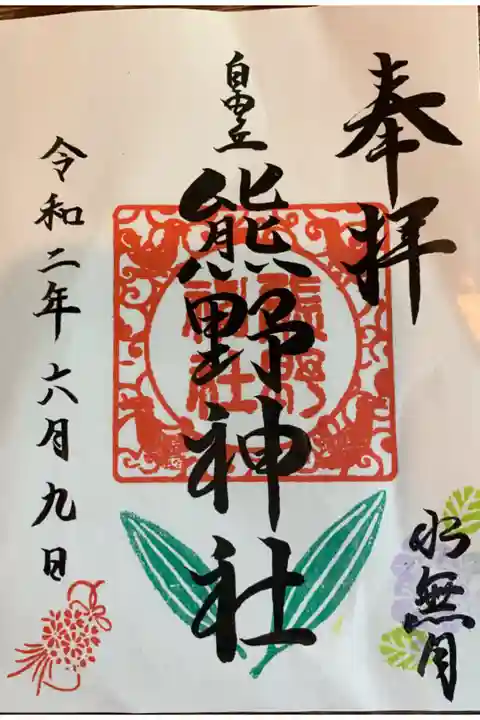 奉拝
水無月
自由丘
熊野神社
熊野
神社
令和二年六月九日